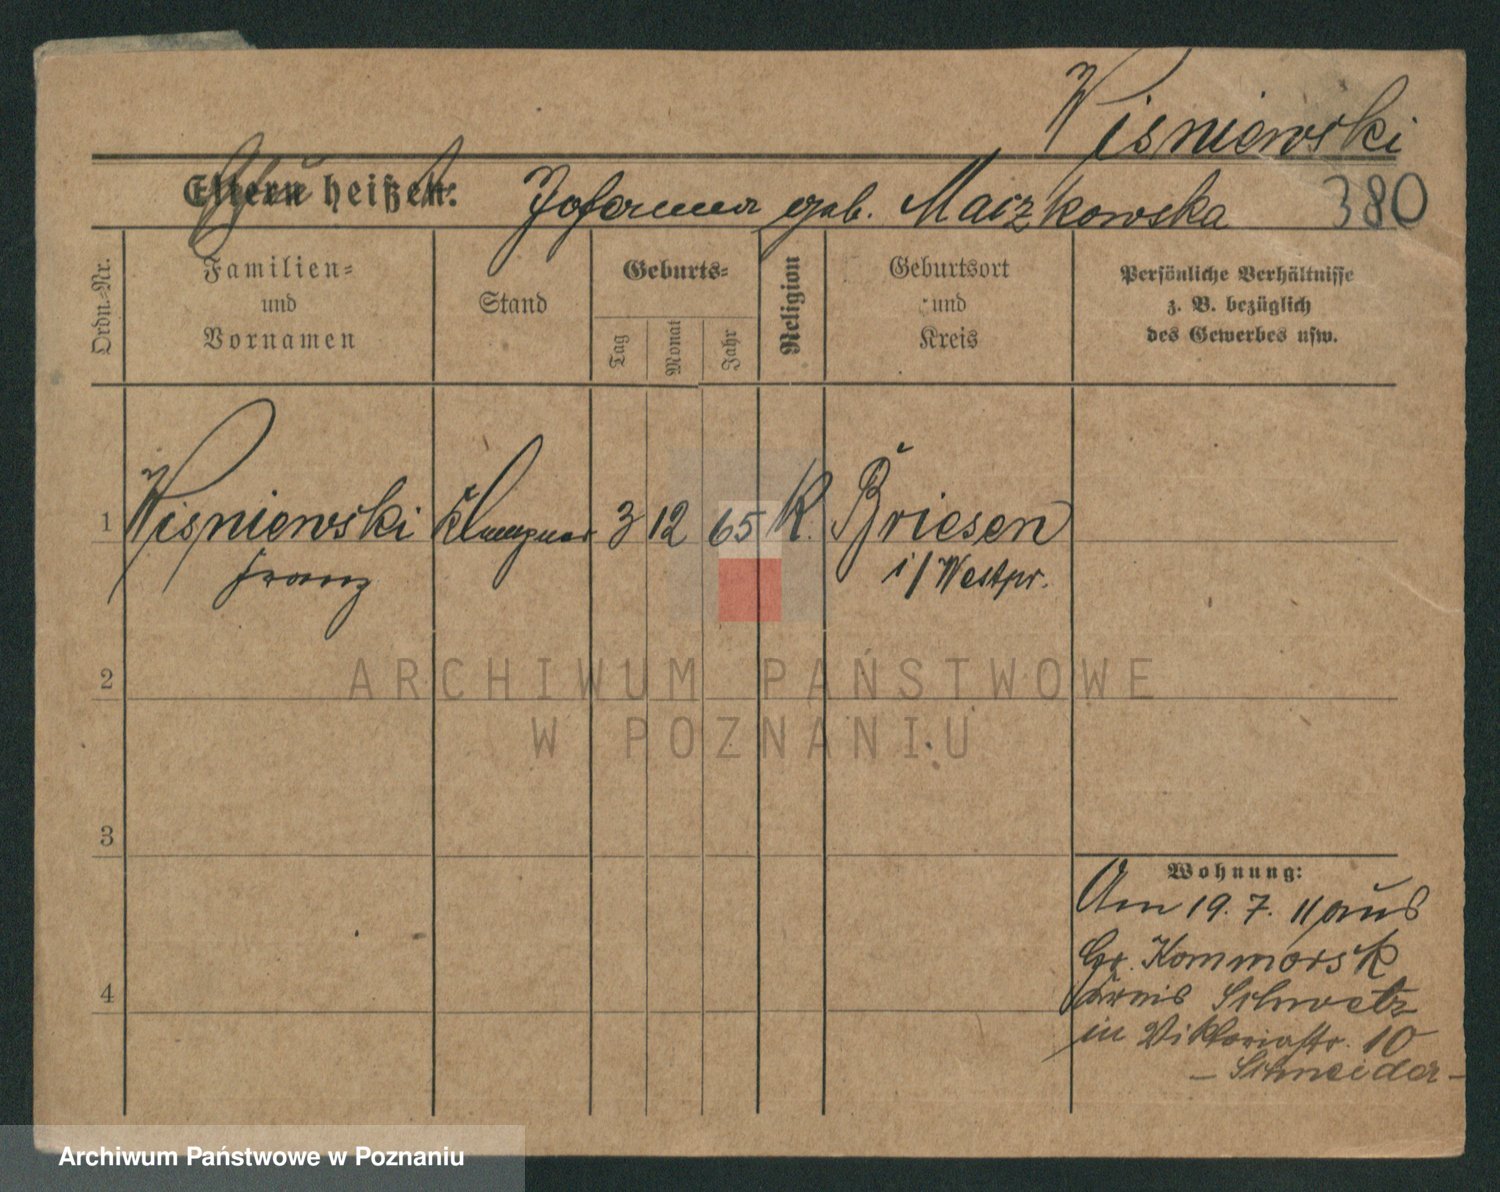 Wisniewski
Eltern heißen: Johanna geb. Maczkowska 380
Ordn.-Nr.
Familien-
und
Vornamen
Stand
Geburts-
Tag
Monat
Jahr
Religion
Geburtsort
und
Kreis
Persönliche Verhältnisse
z. B. bezüglich
des Gewerbes usw.
1 Wisniewski Klempner 3 12 65 K. Briesen
Franz i/Westpr.
2
ARCHIWUM PAŃSTWOWE
W POZNANIU
3
Wohnung:
Am 19. 7. 11 aus
Gr. Kommorsk
Kreis Schwetz
in Viktoriastr. 10
- Schneider -
4
Archiwum Państwowe w Poznaniu